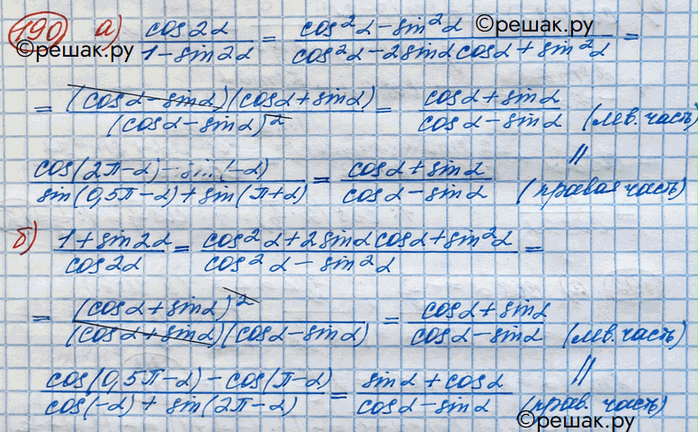 190 а) cos2α / 1 - sin2α = cos²α - sin²α / cos²α - 2sinα cosα + sin²α =
©решак.ру
©решак.ру
= (cosα - sinα)(cosα + sinα) / (cosα - sinα)² = cosα + sinα / cosα - sinα (лев. часть)
||
cos(2π - α) - sin(-α) / sin(0,5π - α) + sin(π + α) = cosα + sinα / cosα - sinα (правая часть)
б) 1 + sin2α / cos2α = cos²α + 2sinα cosα + sin²α / cos²α - sin²α =
= (cosα + sinα)² / (cosα + sinα)(cosα - sinα) = cosα + sinα / cosα - sinα (лев. часть)
||
cos(0,5π - α) - cos(π - α) / cos(-α) + sin(2π - α) = sinα + cosα / cosα - sinα (прав. часть)
©решак.ру